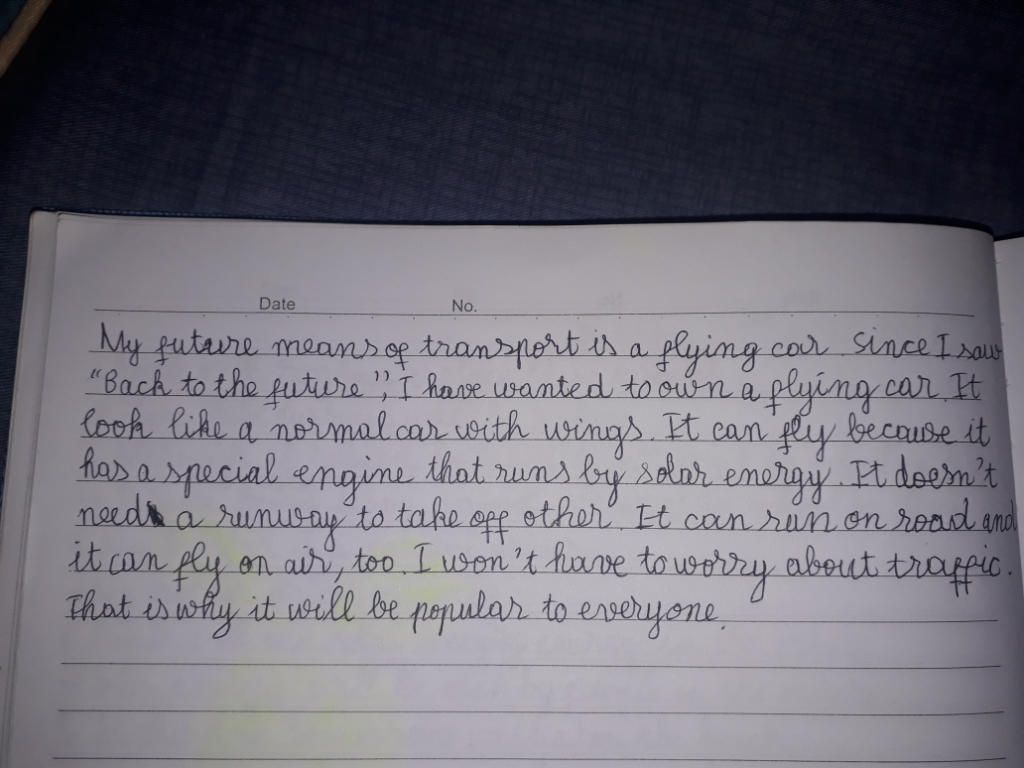 Date No.
My future means of transport is a flying car. Since I saw
"Back to the future", I have wanted to own a flying car. It
look like a normal car with wings. It can fly because it
has a special engine that runs by solar energy. It doesn't
need a runway to take off other. It can run on road and
it can fly on air, too. I won't have to worry about traffic.
That is why it will be popular to everyone.